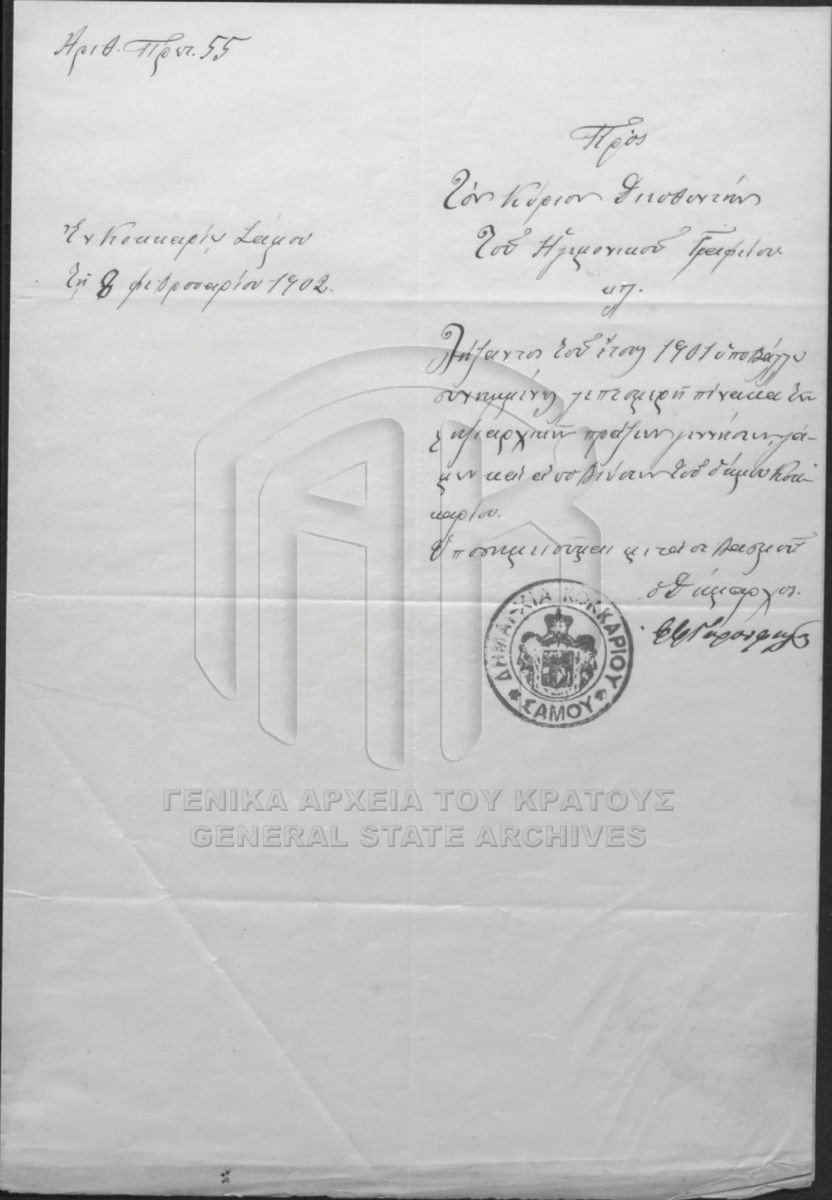 Ἀριθ. Πρωτ. 55
Πρὸς
Τὸν Κύριον Διευθυντὴν
Τοῦ Ἡγεμονικοῦ Γραφείου
κτλ.
Ἐν Κοκκαρίῳ Σάμου
τῇ 8 Φεβρουαρίου 1902.
Λήξαντος τοῦ ἔτους 1901 ὑποβάλλω
συνημμένως λεπτομερῆ πίνακα τῶν
ληξιαρχικῶν πράξεων γεννήσεων, γά-
μων καὶ ἀποβιώσεων τοῦ δήμου Κοκ-
καρίου.
Ὑποσημειοῦμαι μετὰ σεβασμοῦ
ὁ Δήμαρχος.
ΔΗΜΑΡΧΙΑ ΚΟΚΚΑΡΙΟΥ
ΣΑΜΟΥ
ΓΕΝΙΚΑ ΑΡΧΕΙΑ ΤΟΥ ΚΡΑΤΟΥΣ
GENERAL STATE ARCHIVES